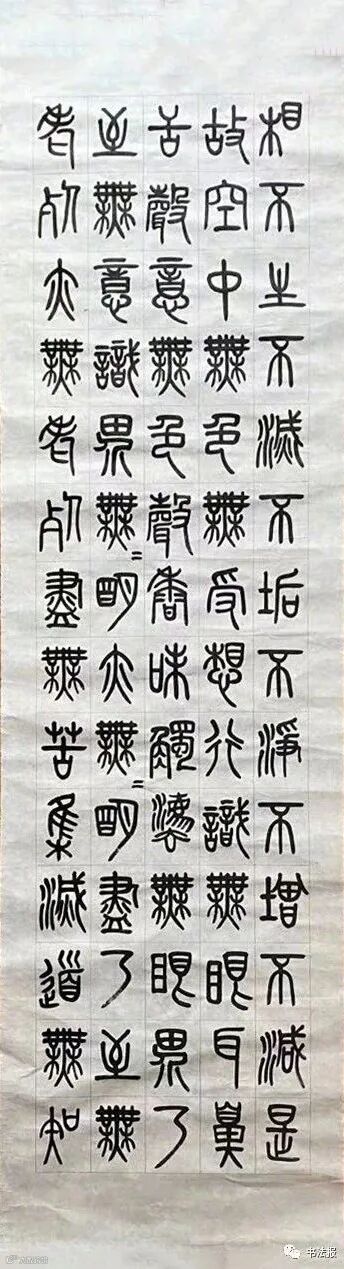 相不生不滅不垢不淨不增不減是
故空中無色無受想行識無眼耳鼻
舌聲意無色聲香味觸法無眼界乃
至無意識界無=明亦無=明盡乃至無
老死亦無老死盡無苦集滅道無知
书法报